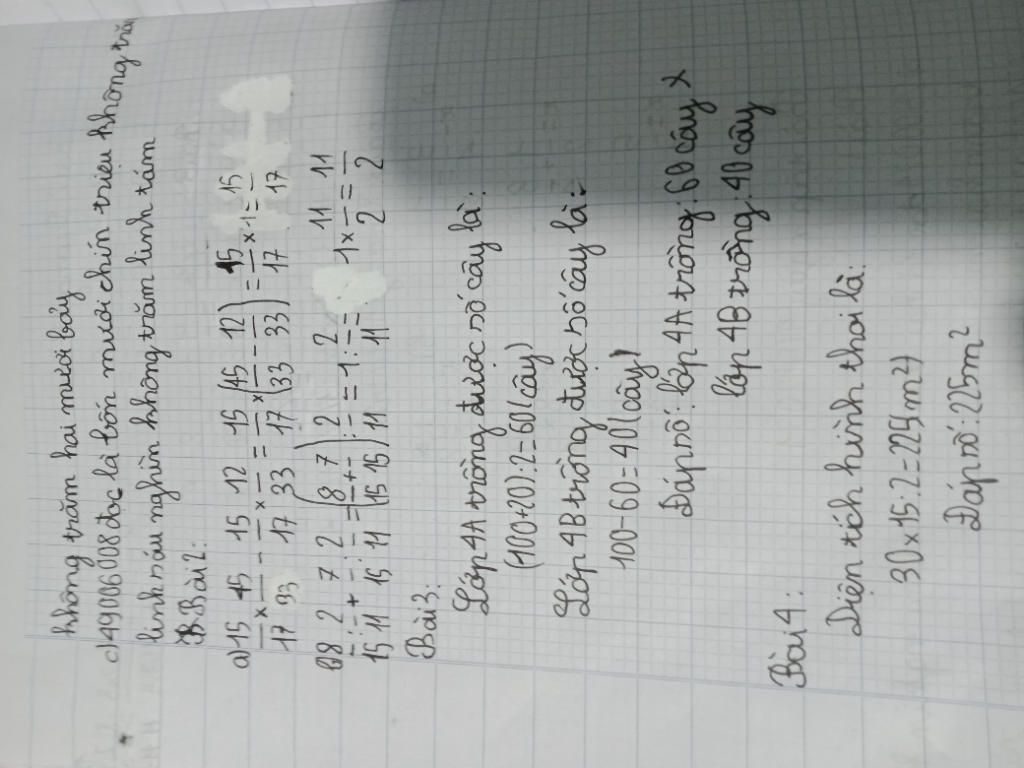 không trăm hai mươi bảy
c) 49006008 đọc là bốn mươi chín triệu không trăm
linh sáu nghìn không trăm linh tám
Bài 2:
a) 15/17 × 45/33 - 15/17 × 12/33 = 15/17 × (45/33 - 12/33) = 15/17 × 1 = 15/17
b) 8/15 : 2/11 + 7/15 : 2/11 = (8/15 + 7/15) : 2/11 = 1 : 2/11 = 1 × 11/2 = 11/2
Bài 3:
Lớp 4A trồng được số cây là:
(100+20):2=60(cây)
Lớp 4B trồng được số cây là:
100-60=40(cây)
Đáp số: lớp 4A trồng: 60 cây
lớp 4B trồng: 40 cây
Bài 4:
Diện tích hình thoi là:
30×15:2=225(m²)
Đáp số: 225m²